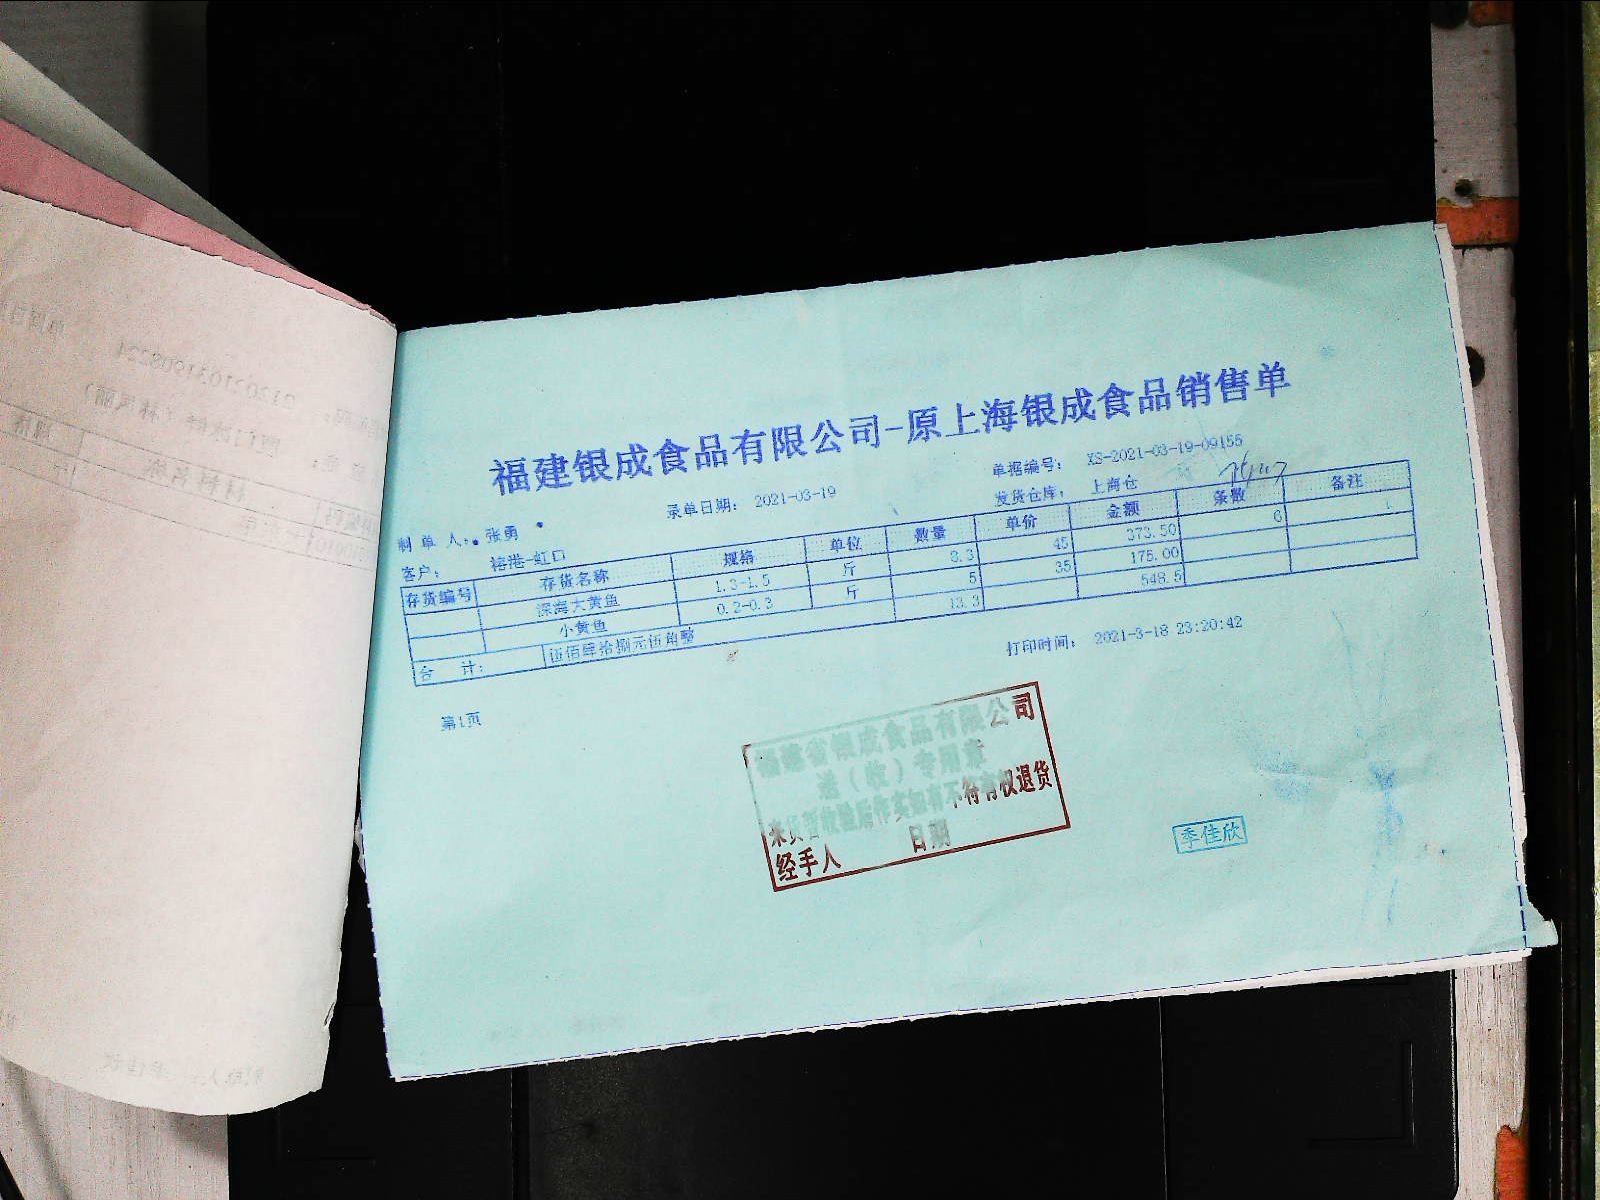 福建银成食品有限公司-原上海银成食品销售单
制单人: 张勇 录单日期: 2021-03-19 单据编号: XS-2021-03-19-09155
客户: 榕港-虹口 发货仓库: 上海仓
存货编号 存货名称 规格 单位 数量 单价 金额 条数 备注
深海大黄鱼 1.3-1.5 斤 8.3 45 373.50 6 1
小黄鱼 0.2-0.3 斤 5 35 175.00
合 计: 伍佰肆拾捌元伍角整 13.3 548.5
第1页 打印时间: 2021-3-18 23:20:42
福建省银成食品有限公司
送(收)专用章
来货暂收验后作实如有不符有权退货
经手人 日期
季佳欣